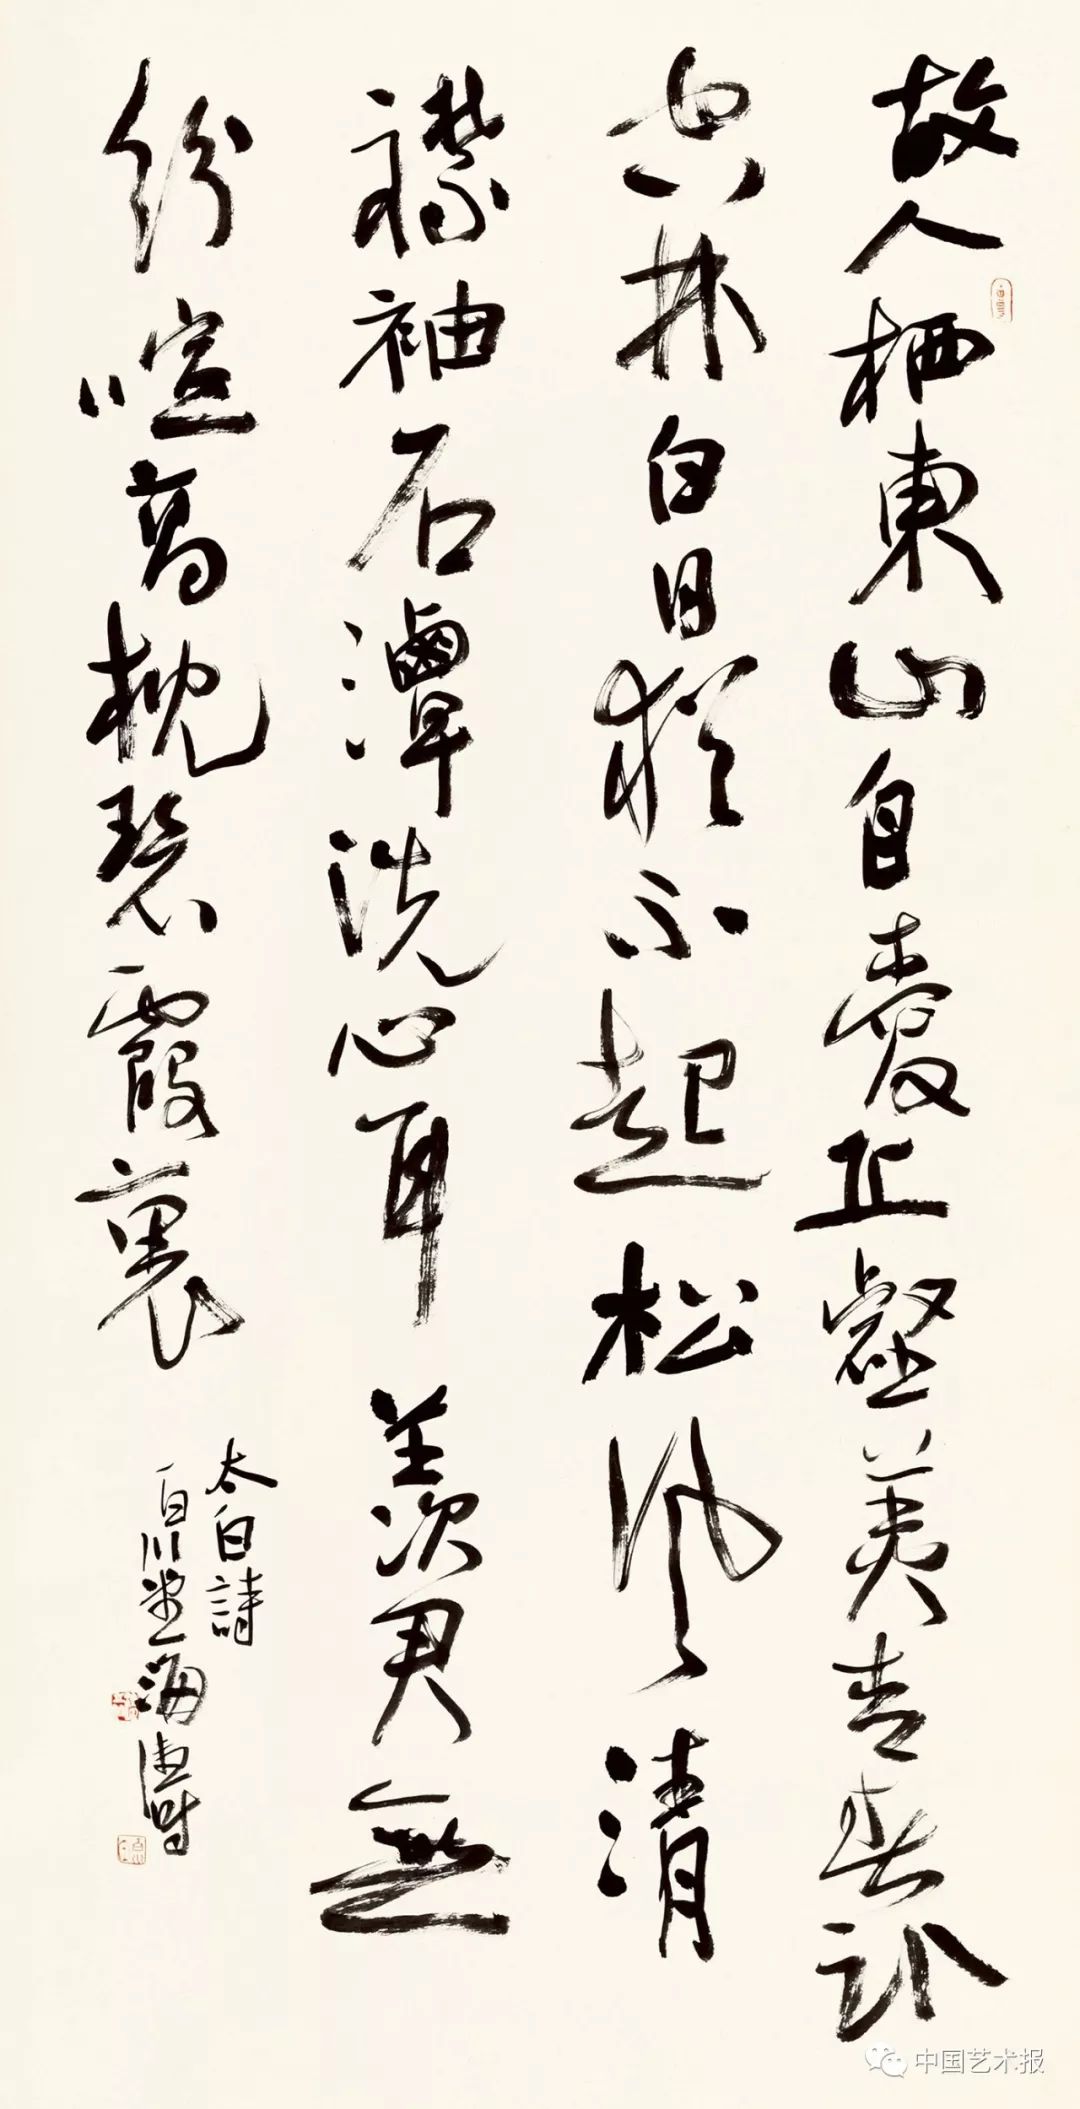 故人栖東山自愛丘壑美青春臥
空林白日猶不起松風清
襟袖石潭洗心耳羨君無
紛喧高枕碧霞裏
太白詩
百川堂海
中国艺术报